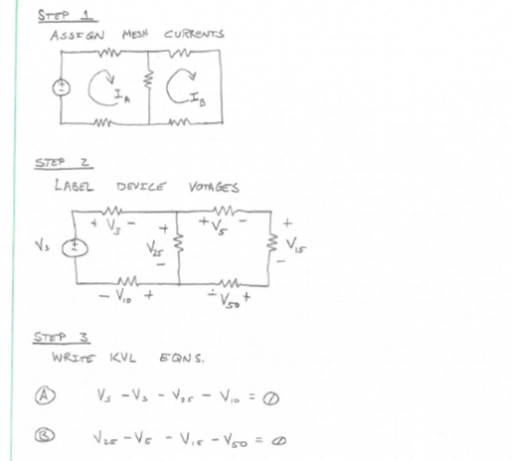 STEP 1
ASSIGN MESH CURRENTS
I_A
I_B
STEP 2
LABEL DEVICE VOTAGES
+ V_3 -
+ V_5 -
+
+
V_s
V_25
V_15
-
-
- V_10 +
- V_50 +
STEP 3
WRITE KVL EQNS.
A V_s - V_3 - V_25 - V_10 = 0
B V_25 - V_5 - V_15 - V_50 = 0